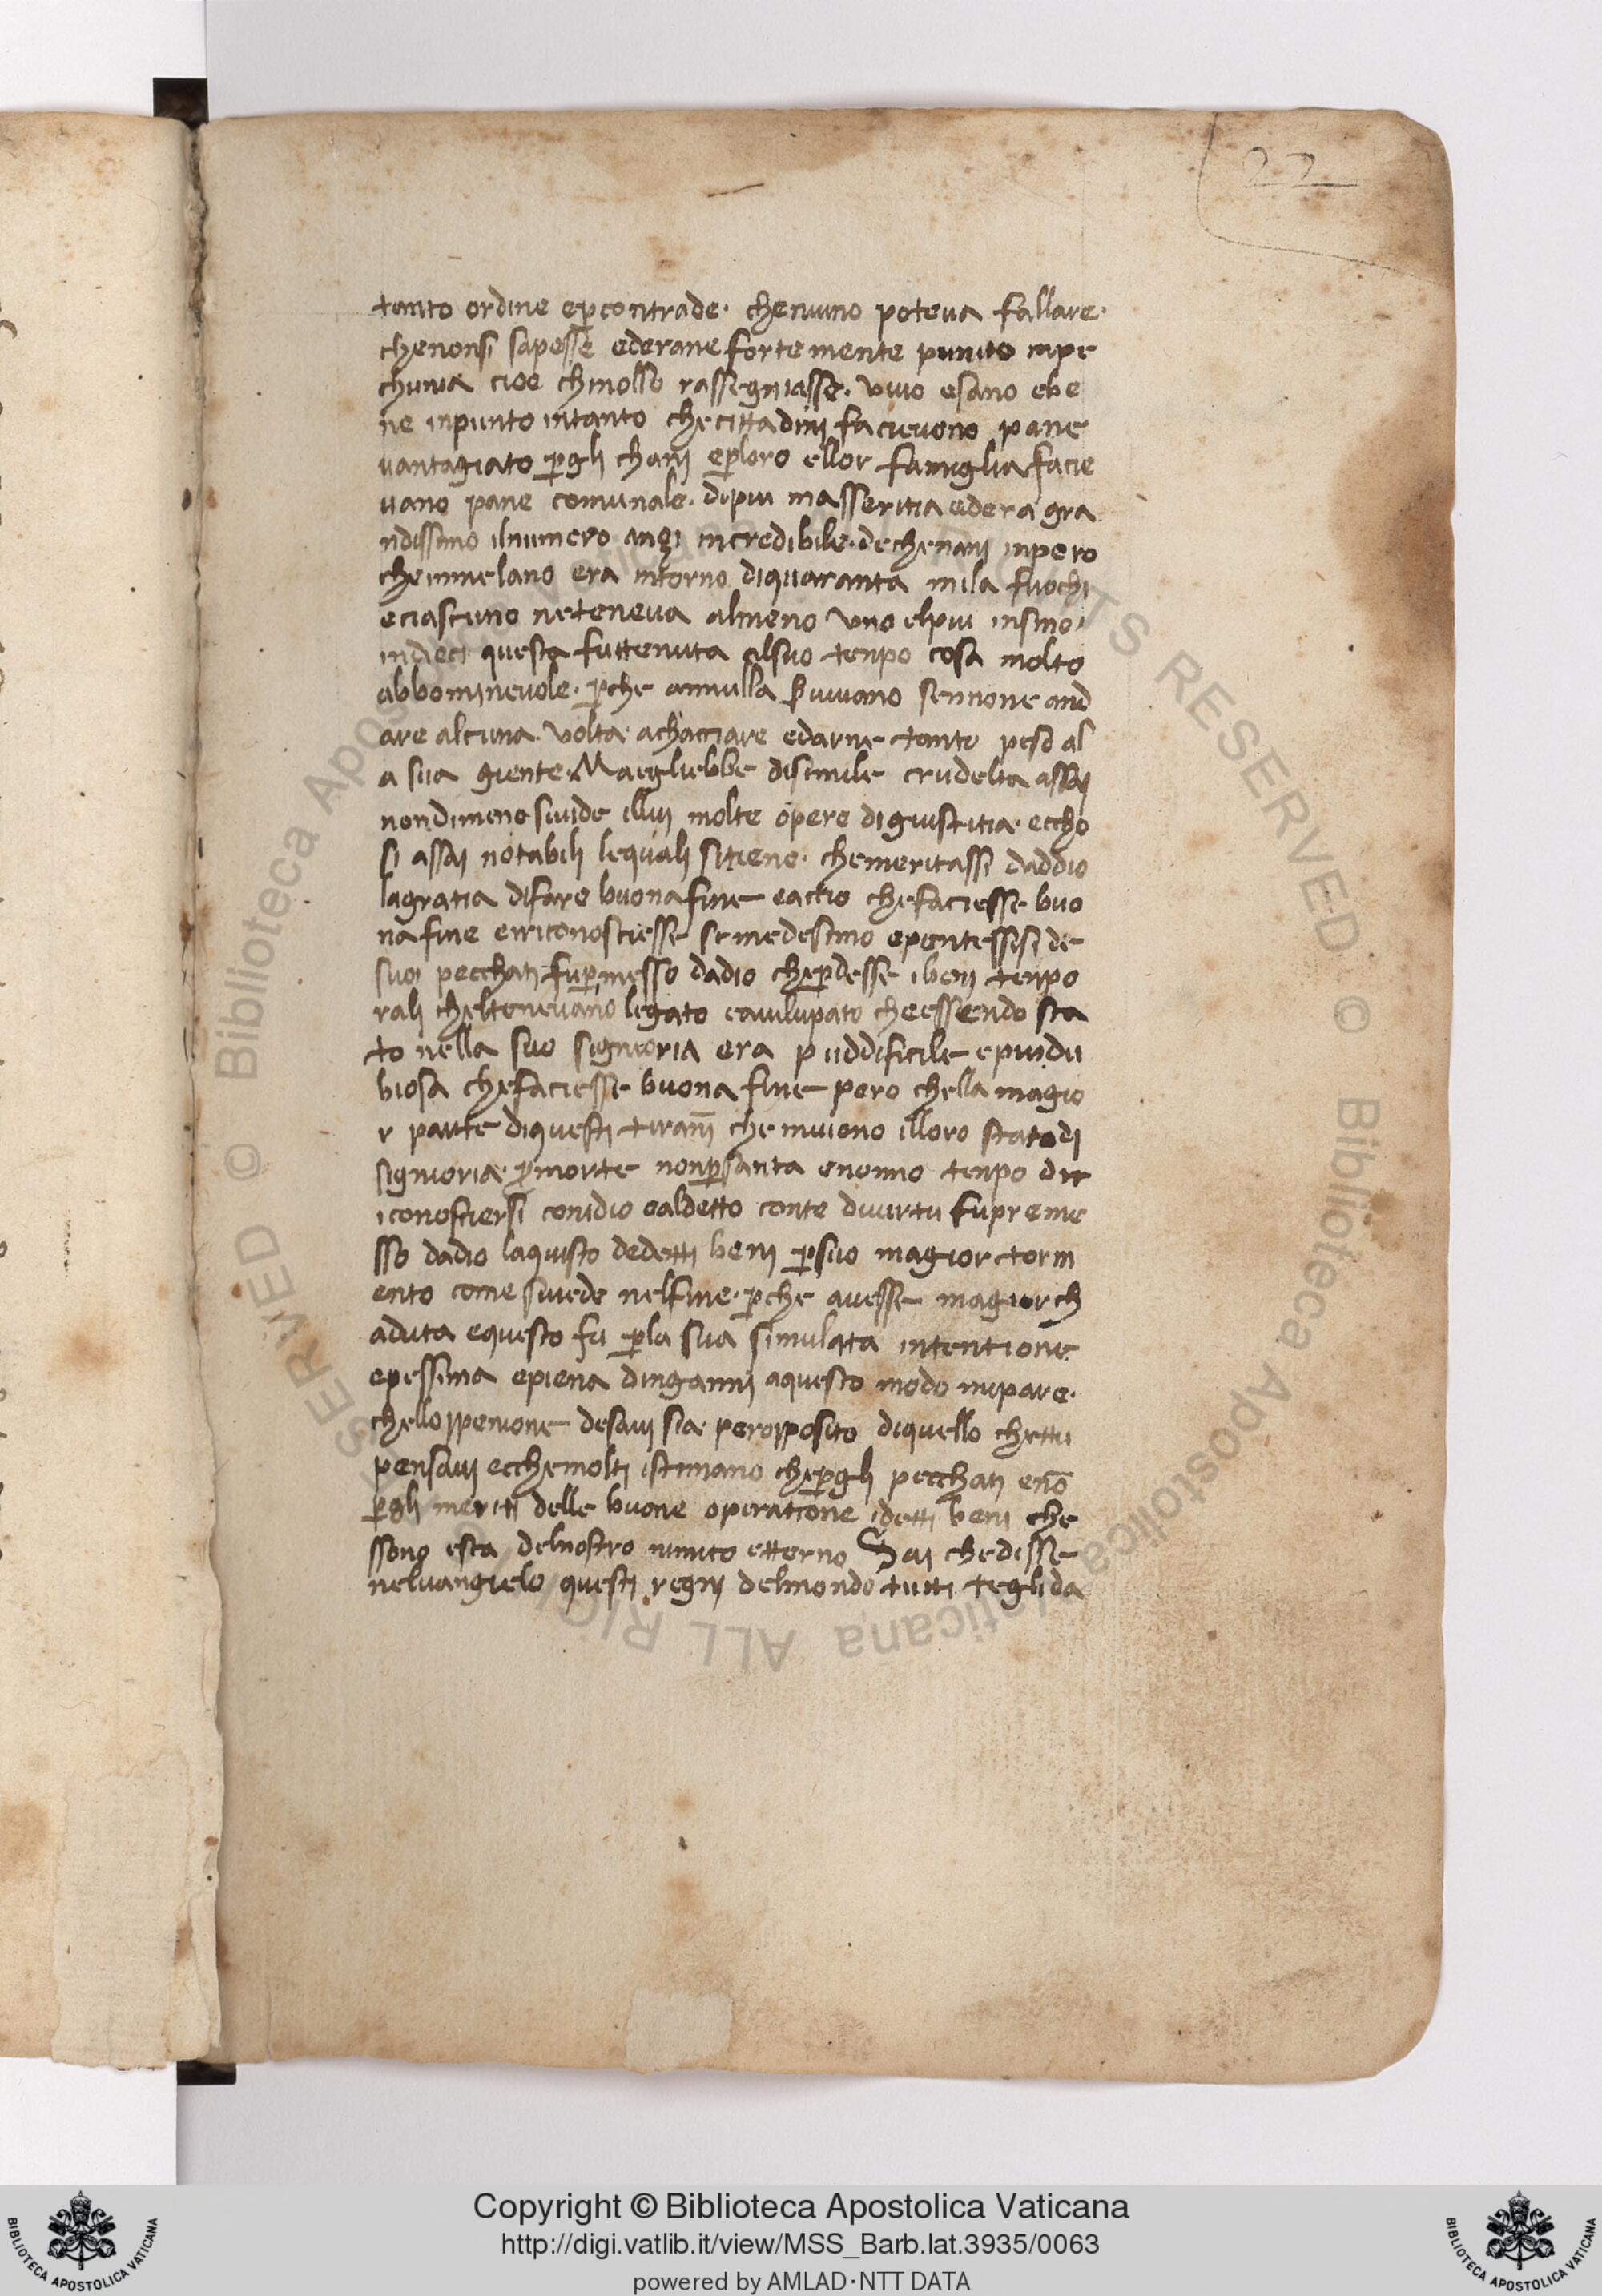 22
tanto ordine ep̱contrade· cheniuno poteua fallare·
chenonsi sapesse ederane fortemente punito inpe
chunia cioe chinollo rassegniasse· viuo esano ebe
ne inpunto intanto checittadini facieuono pane
uantagiato p̱gli chani ep̱loro ellor famiglia facie
uano pane comunale· dipiu masseritia edera gra
ndissimo ilnumero anzi incredibile· dechenani inpero
cheinmelano era intorno diquaranta mila fuochi
eciascuno neteneua almeno vno elpiu insino
indieci questa futtenuta alsuo tenpo cosa molto
abbomineuole· p̱che annulla seruiuano sennone and
are alcuna volta achacciare edarne tanto peso al
a sua giente· Maegliebbe disimile crudelta assai
nondimeno siuide illui molte opere digiustitia· eccho
si assai notabili lequali sitiene· chemeritassi daddio
lagratia difare buonafine eaccio chefaciesse buo
nafine ericonosciessi semedesimo epentessisi de
suoi pecchati fup̱messo dadio chep̱desse ibeni tenpo
rali cheltenevano legato eauilupato cheessendo sta
to nella suo signioria era piuddificile epiudu
biosa chefaciesse buona fine pero chella magio
r parte diquesti tirani̅ che muiono illoro statodi
signioria· p̱morte nonp̱santa enonno tenpo dir
iconosciersi conidio ealdetto conte diuirtu fupreme
sso dadio laquisto dedetti beni p̱suo magior torm
ento come siuede nelfine· p̱che auesse magior ch
aduta equesto fu p̱la sua simulata intentione
epessima epiena dinganni aquesto modo mipare·
chelloppenione desaui sia peropposito diquello chettu
pensaui ecchemolti istimano chep̱gli pecchati eno̅
p̱gli meriti delle buone operatione idetti beni che
ssono esca delnostro nimico etterno Sai chedisse
neluangielo questi regni delmondo tutti teglida
RESERVED © Biblioteca Apostolica Vaticana ALL RIGHTS RESERVED © Biblioteca Apostolica Vaticana ALL RIGHTS
Copyright © Biblioteca Apostolica Vaticana
http://digi.vatlib.it/view/MSS_Barb.lat.3935/0063
powered by AMLAD·NTT DATA
BIBLIOTECA APOSTOLICA VATICANA
BIBLIOTECA APOSTOLICA VATICANA